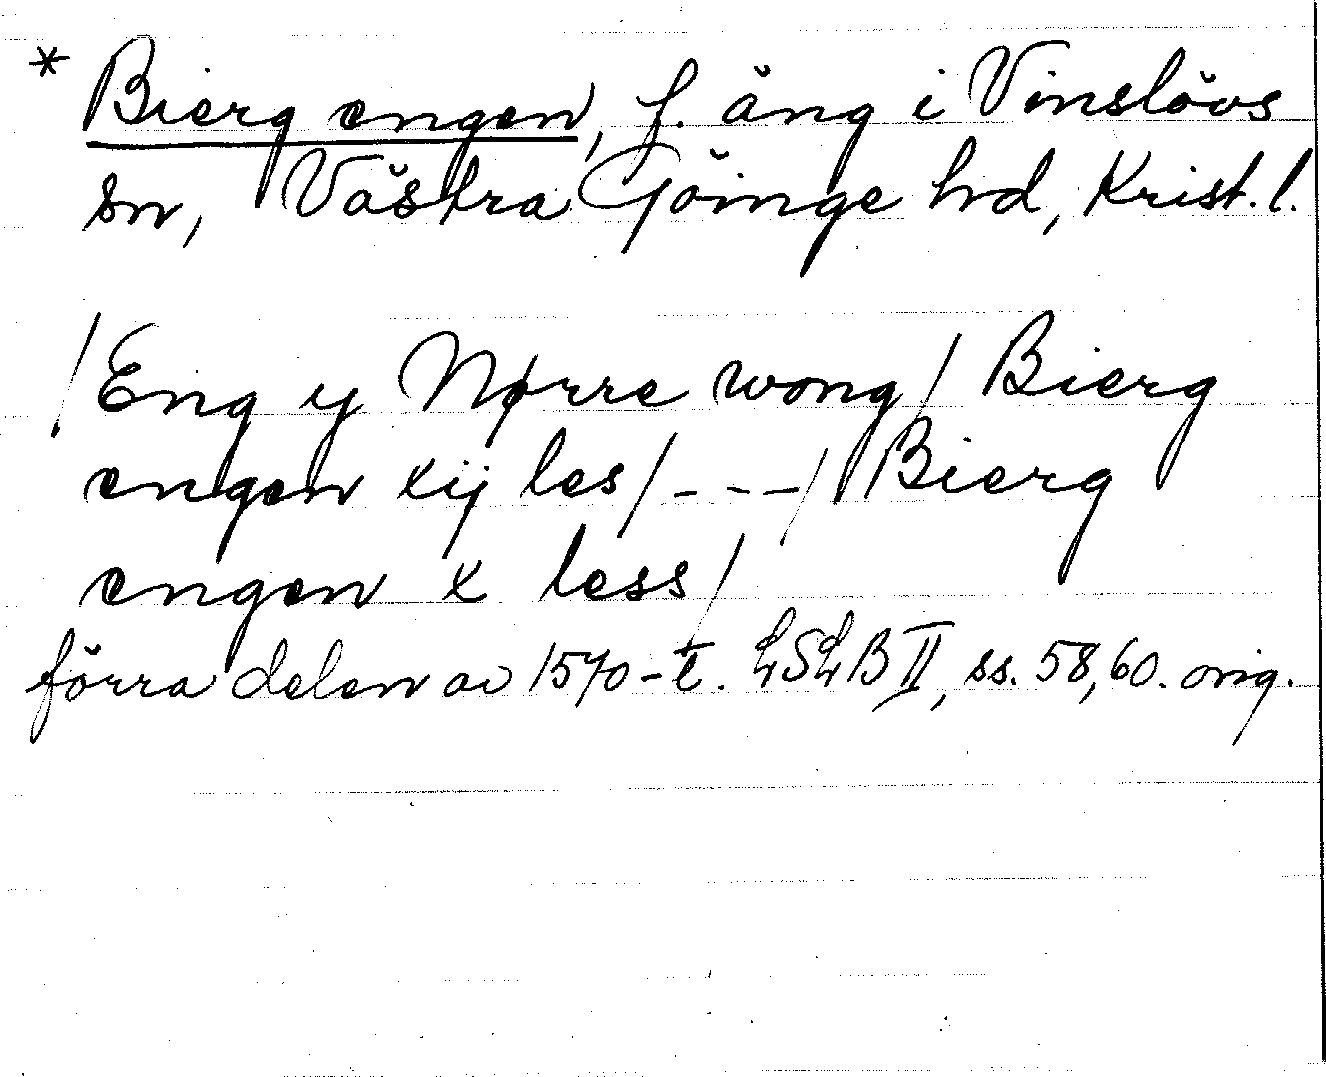 * Bierg engen, f. äng i Vinslövs
sn, Västra Göinge hd, Krist. l.
/Eng y Nørre wong/ Bierg
engen xij les/---/ Bierg
engen x less/
förra delen av 1570-t. LSLB II, ss. 58, 60. orig.